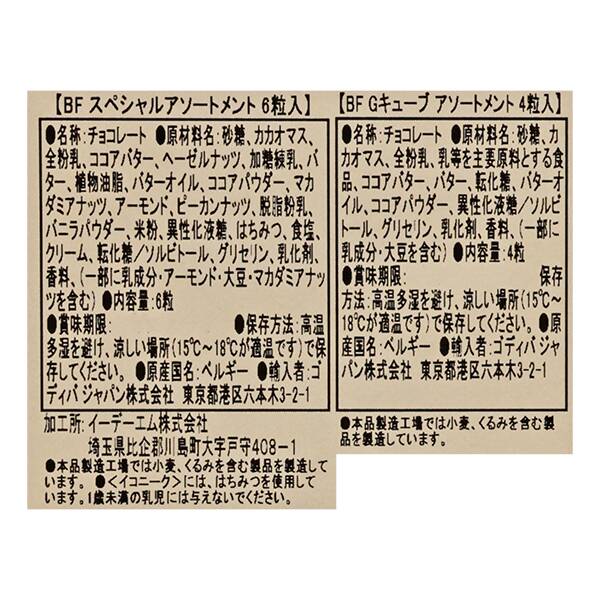 【BF スペシャルアソートメント 6粒入】
●名称:チョコレート ●原材料名:砂糖、カカオマス、
全粉乳、ココアバター、ヘーゼルナッツ、加糖練乳、バ
ター、植物油脂、バターオイル、ココアパウダー、マカ
ダミアナッツ、アーモンド、ピーカンナッツ、脱脂粉乳、
バニラパウダー、米粉、異性化液糖、はちみつ、食塩、
クリーム、転化糖/ソルビトール、グリセリン、乳化剤、
香料、(一部に乳成分・アーモンド・大豆・マカダミアナッ
ツを含む) ●内容量:6粒
●賞味期限: ●保存方法:高温
多湿を避け、涼しい場所(15℃～18℃が適温です)で保
存してください。 ●原産国名:ベルギー ●輸入者:ゴ
ディバ ジャパン株式会社 東京都港区六本木3-2-1
加工所:イーデーエム株式会社
埼玉県比企郡川島町大字戸守408-1
●本品製造工場では小麦、くるみを含む製品を製造して
います。 ●<イコニーク>には、はちみつを使用して
います。1歳未満の乳児には与えないでください。
【BF Gキューブ アソートメント 4粒入】
●名称:チョコレート ●原材料名:砂糖、カ
カオマス、全粉乳、乳等を主要原料とする食
品、ココアバター、バター、転化糖、バターオ
イル、ココアパウダー、異性化液糖/ソルビ
トール、グリセリン、乳化剤、香料、(一部に
乳成分・大豆を含む) ●内容量:4粒
●賞味期限: 保存
方法:高温多湿を避け、涼しい場所(15℃～
18℃が適温です)で保存してください。 ●原
産国名:ベルギー ●輸入者:ゴディバ ジャ
パン株式会社 東京都港区六本木3-2-1
●本品製造工場では小麦、くるみを含む製品
を製造しています。